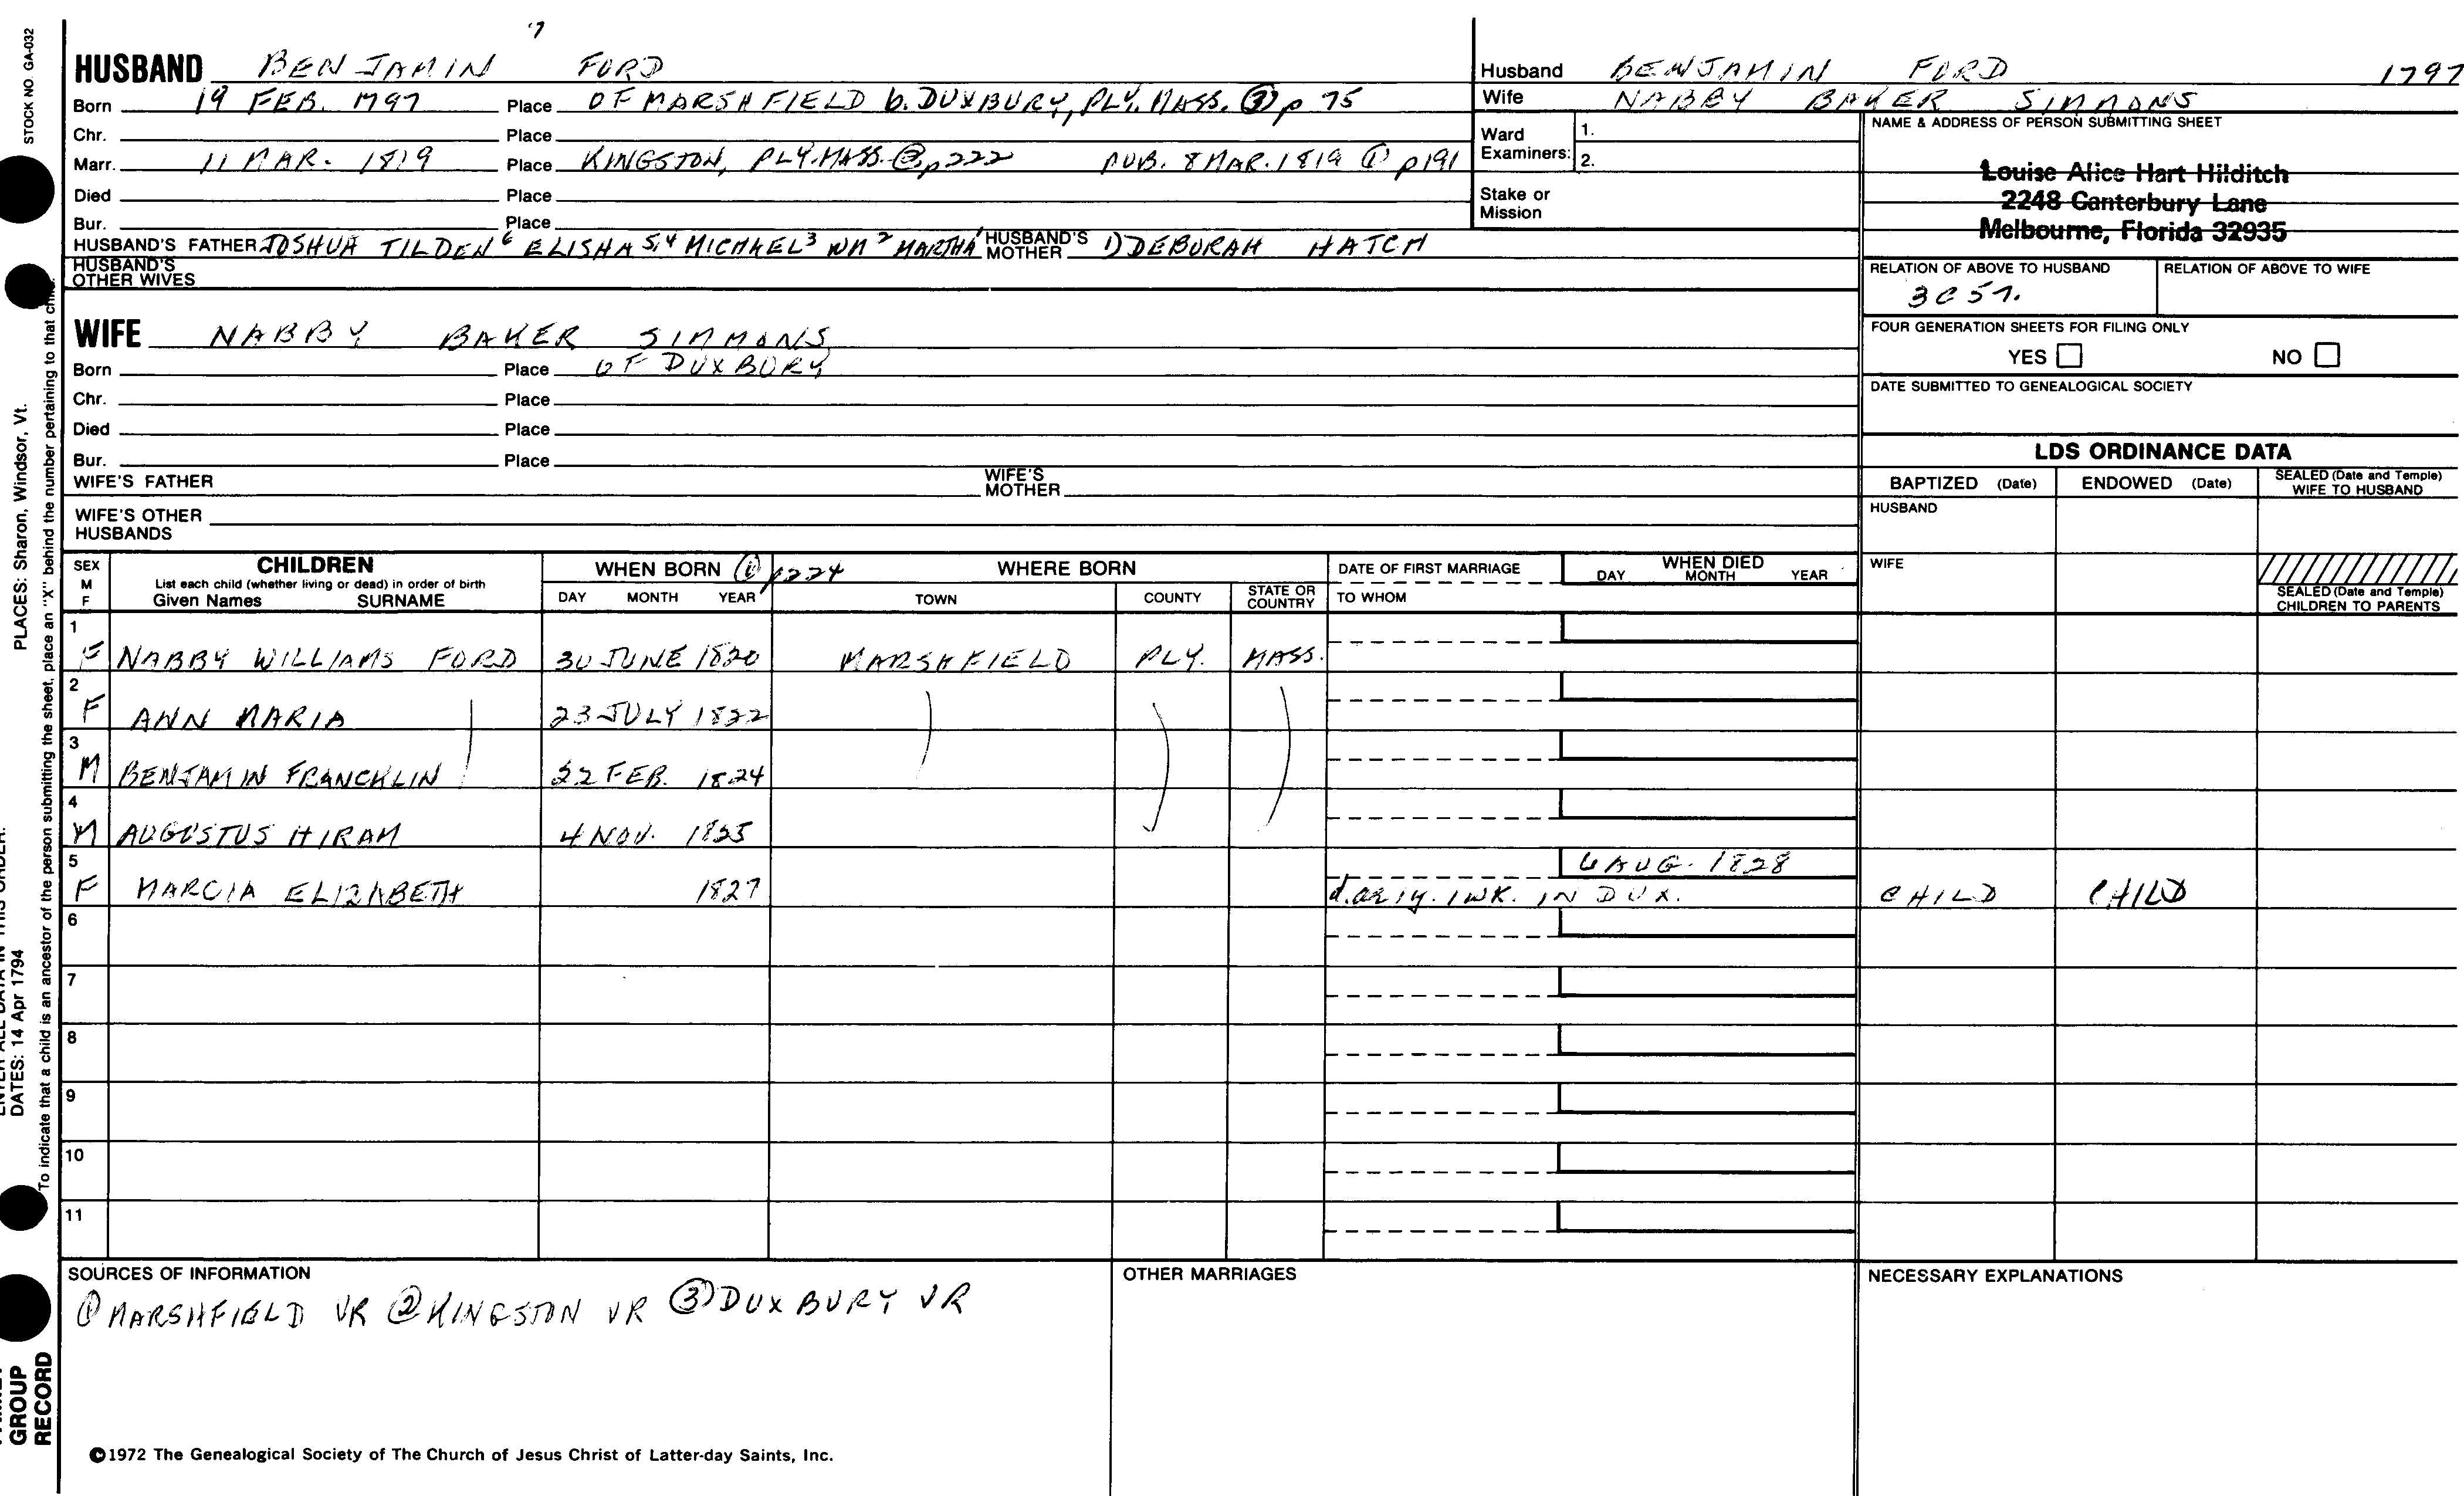 7
HUSBAND BENJAMIN FORD
Born 19 FEB. 1797 Place OF MARSHFIELD b. DUXBURY, PLY. MASS. ③ p 75
Chr. Place
Marr. 11 MAR. 1819 Place KINGSTON, PLY. MASS. ② p 222 PUB. 8 MAR. 1819 ① p 191
Died Place
Bur. Place
HUSBAND'S FATHER JOSHUA TILDEN 6 ELISHA 5,4 MICHAEL 3 WM 2 MARTHA 1 HUSBAND'S MOTHER 1) DEBORAH HATCH
HUSBAND'S OTHER WIVES
WIFE NABBY BAKER SIMMONS
Born Place OF DUXBURY
Chr. Place
Died Place
Bur. Place
WIFE'S FATHER WIFE'S MOTHER
WIFE'S OTHER HUSBANDS
Husband BENJAMIN FORD 1797
Wife NABBY BAKER SIMMONS
Ward Examiners: 1.
2.
Stake or Mission
NAME & ADDRESS OF PERSON SUBMITTING SHEET
Louise Alice Hart Hilditch
2248 Canterbury Lane
Melbourne, Florida 32935
RELATION OF ABOVE TO HUSBAND RELATION OF ABOVE TO WIFE
3C5
FOUR GENERATION SHEETS FOR FILING ONLY
YES NO
DATE SUBMITTED TO GENEALOGICAL SOCIETY
LDS ORDINANCE DATA
BAPTIZED (Date) ENDOWED (Date) SEALED (Date and Temple) WIFE TO HUSBAND
HUSBAND
WIFE
SEALED (Date and Temple) CHILDREN TO PARENTS
SEX M F CHILDREN WHEN BORN ① p224 WHERE BORN DATE OF FIRST MARRIAGE WHEN DIED
List each child (whether living or dead) in order of birth
Given Names SURNAME DAY MONTH YEAR TOWN COUNTY STATE OR COUNTRY TO WHOM DAY MONTH YEAR
1 F NABBY WILLIAMS FORD 30 JUNE 1820 MARSHFIELD PLY. MASS.
2 F ANN MARIA 23 JULY 1822
3 M BENJAMIN FRANCKLIN 22 FEB. 1824
4 M AUGUSTUS HIRAM 4 NOV. 1825
5 F MARCIA ELIZABETH 1827 6 AUG. 1828
d. ae 1y. 1 WK. IN DUX. CHILD CHILD
6
7
8
9
10
11
SOURCES OF INFORMATION
① MARSHFIELD VR ② KINGSTON VR ③ DUXBURY VR
OTHER MARRIAGES
NECESSARY EXPLANATIONS
©1972 The Genealogical Society of The Church of Jesus Christ of Latter-day Saints, Inc.
STOCK NO. GA-032
PLACES: Sharon, Windsor, Vt.
ENTER ALL DATA IN THIS ORDER:
DATES: 14 Apr 1794
To indicate that a child is an ancestor of the person submitting the sheet, place an "X" behind the number pertaining to that child.
GROUP
RECORD